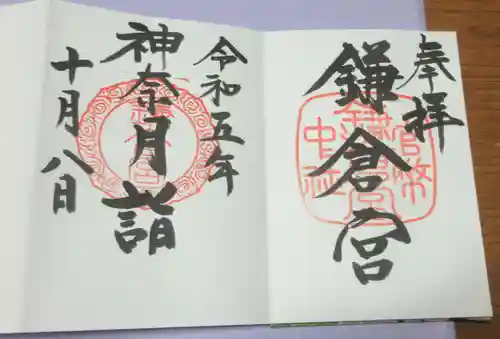 奉拝
鎌倉宮
官幣
鎌倉宮
中社
令和五年
神奈月詣
十月八日